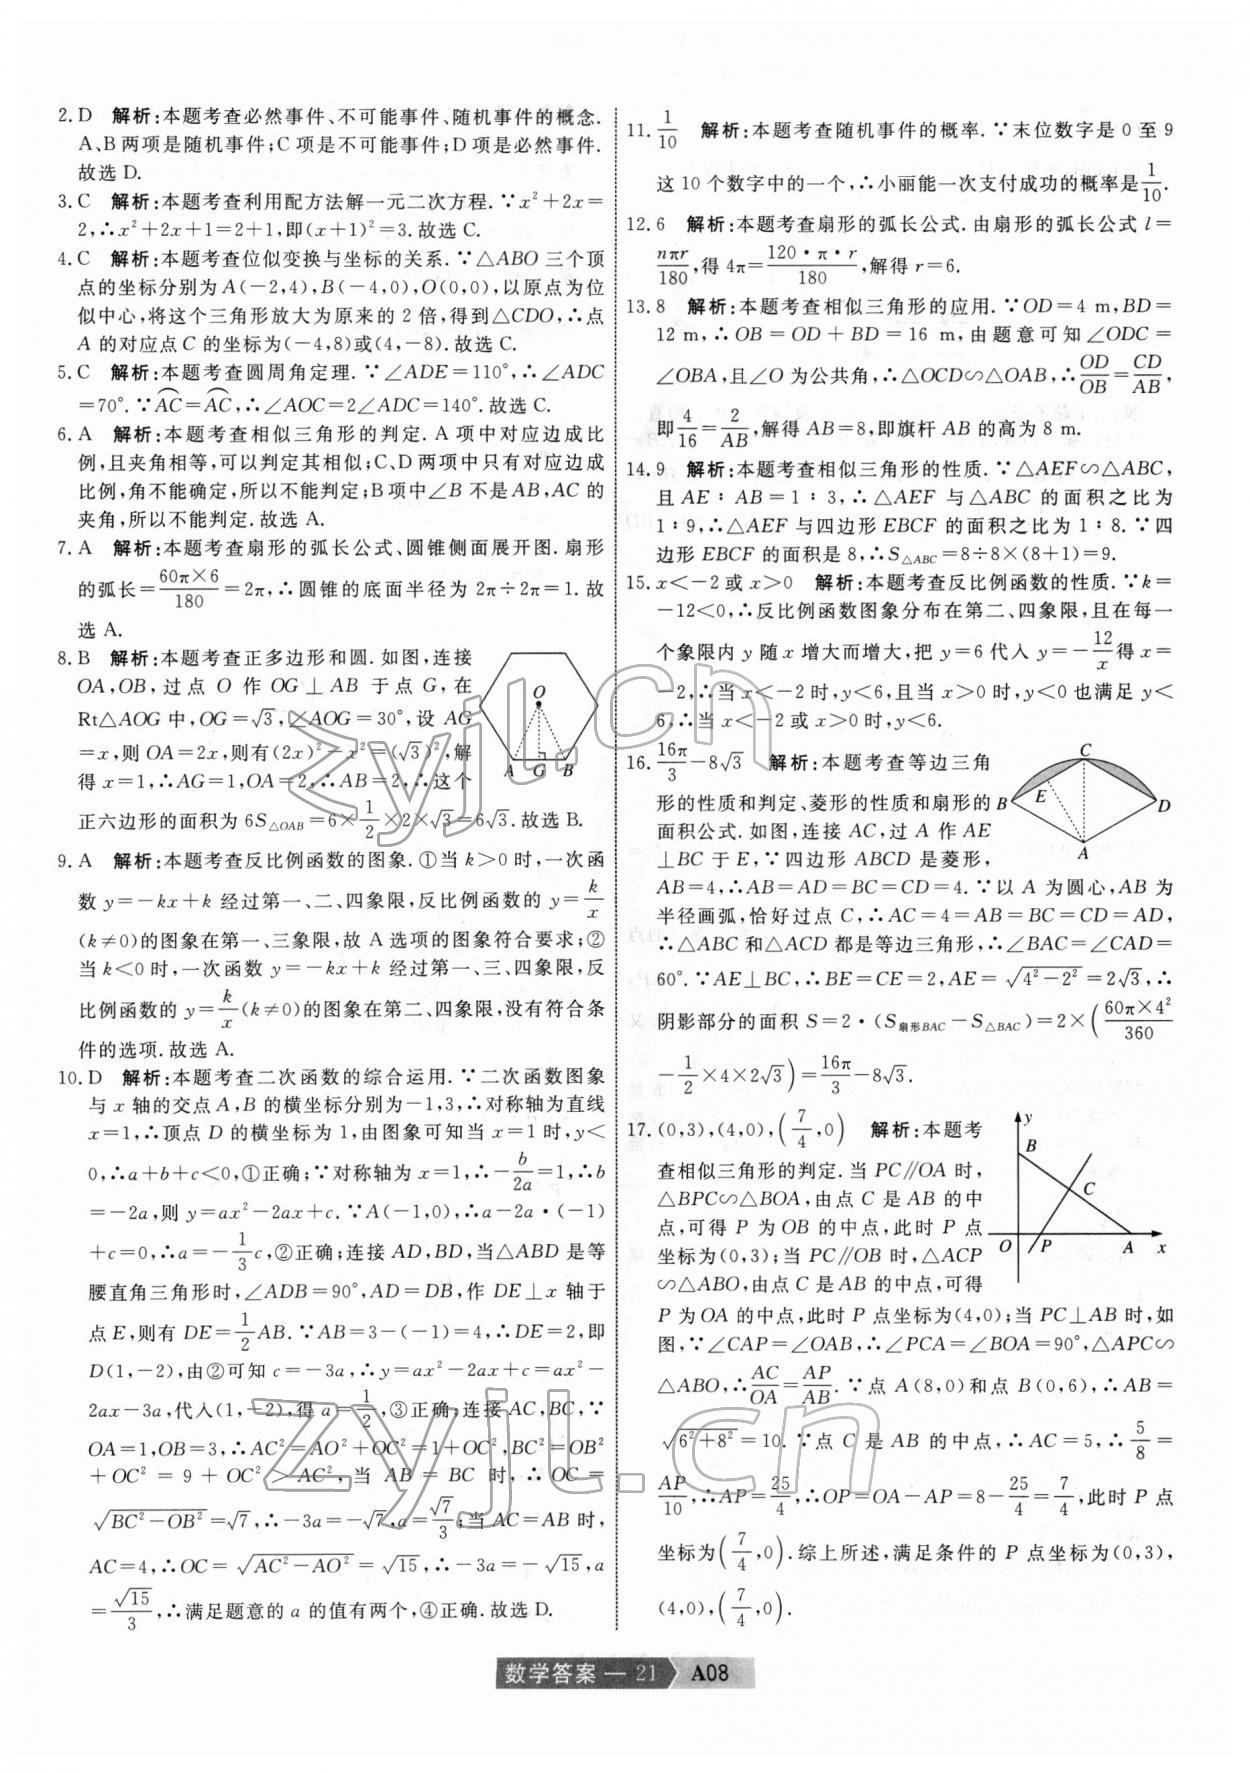 2. D 解析:本题考查必然事件、不可能事件、随机事件的概念.
A、B两项是随机事件;C项是不可能事件;D项是必然事件.
故选 D.
3. C 解析:本题考查利用配方法解一元二次方程.∵x²+2x=
2,∴x²+2x+1=2+1,即(x+1)²=3.故选 C.
4. C 解析:本题考查位似变换与坐标的关系.∵△ABO 三个顶
点的坐标分别为 A(-2,4),B(-4,0),O(0,0),以原点为位
似中心,将这个三角形放大为原来的 2 倍,得到△CDO,∴点
A 的对应点 C 的坐标为(-4,8)或(4,-8).故选 C.
5. C 解析:本题考查圆周角定理.∵∠ADE=110°,∴∠ADC
=70°.∵⌒AC=⌒AC,∴∠AOC=2∠ADC=140°.故选 C.
6. A 解析:本题考查相似三角形的判定.A 项中对应边成比
例,且夹角相等,可以判定其相似;C、D 两项中只有对应边成
比例,角不能确定,所以不能判定;B项中∠B 不是AB,AC 的
夹角,所以不能判定.故选 A.
7. A 解析:本题考查扇形的弧长公式、圆锥侧面展开图.扇形
的弧长=60π×6/180=2π,∴圆锥的底面半径为 2π÷2π=1.故
选 A.
8. B 解析:本题考查正多边形和圆.如图,连接
OA,OB,过点 O 作 OG⊥AB 于点 G,在
Rt△AOG 中,OG=√3,∠AOG=30°,设 AG
=x,则 OA=2x,则有(2x)²-x²=(√3)²,解
得 x=1,∴AG=1,OA=2,∴AB=2,∴这个
正六边形的面积为 6S△OAB=6×1/2×2×√3=6√3.故选 B.
O
A G B
9. A 解析:本题考查反比例函数的图象.①当 k>0 时,一次函
数 y=-kx+k 经过第一、二、四象限,反比例函数的 y=k/x
(k≠0)的图象在第一、三象限,故 A 选项的图象符合要求;②
当 k<0 时,一次函数 y=-kx+k 经过第一、三、四象限,反
比例函数的 y=k/x(k≠0)的图象在第二、四象限,没有符合条
件的选项.故选 A.
10. D 解析:本题考查二次函数的综合运用.∵二次函数图象
与 x 轴的交点 A,B 的横坐标分别为-1,3,∴对称轴为直线
x=1,∴顶点 D 的横坐标为 1,由图象可知当 x=1 时,y<
0,∴a+b+c<0,①正确;∵对称轴为 x=1,∴-b/2a=1,∴b
=-2a,则 y=ax²-2ax+c.∵A(-1,0),∴a-2a·(-1)
+c=0,∴a=-1/3c,②正确;连接 AD,BD,当△ABD 是等
腰直角三角形时,∠ADB=90°,AD=DB,作 DE⊥x 轴于
点 E,则有 DE=1/2AB.∵AB=3-(-1)=4,∴DE=2,即
D(1,-2),由②可知 c=-3a,∴y=ax²-2ax+c=ax²-
2ax-3a,代入(1,-2),得 a=1/2,③正确;连接 AC,BC,∵
OA=1,OB=3,∴AC²=AO²+OC²=1+OC²,BC²=OB²
+OC²=9+OC²>AC²,当 AB=BC 时,∴OC=
√(BC²-OB²)=√7,∴-3a=-√7,a=√7/3;当 AC=AB 时,
AC=4,∴OC=√(AC²-AO²)=√15,∴-3a=-√15,a
=√15/3,∴满足题意的 a 的值有两个,④正确.故选 D.
11. 1/10 解析:本题考查随机事件的概率.∵末位数字是 0 至 9
这 10 个数字中的一个,∴小丽能一次支付成功的概率是1/10.
12. 6 解析:本题考查扇形的弧长公式.由扇形的弧长公式 l=
nπr/180,得 4π=120·π·r/180,解得 r=6.
13. 8 解析:本题考查相似三角形的应用.∵OD=4 m,BD=
12 m,∴OB=OD+BD=16 m,由题意可知∠ODC=
∠OBA,且∠O 为公共角,∴△OCD∽△OAB,∴OD/OB=CD/AB,
即4/16=2/AB,解得 AB=8,即旗杆 AB 的高为 8 m.
14. 9 解析:本题考查相似三角形的性质.∵△AEF∽△ABC,
且 AE∶AB=1∶3,∴△AEF 与△ABC 的面积之比为
1∶9,∴△AEF 与四边形 EBCF 的面积之比为 1∶8.∵四
边形 EBCF 的面积是 8,∴S△ABC=8÷8×(8+1)=9.
15. x<-2或 x>0 解析:本题考查反比例函数的性质.∵k=
-12<0,∴反比例函数图象分布在第二、四象限,且在每一
个象限内 y 随 x 增大而增大,把 y=6 代入 y=-12/x得 x=
-2,∴当 x<-2 时,y<6,且当 x>0 时,y<0 也满足 y<
6,∴当 x<-2 或 x>0 时,y<6.
16. 16π/3-8√3 解析:本题考查等边三角
形的性质和判定、菱形的性质和扇形的
面积公式.如图,连接 AC,过 A 作 AE
⊥BC 于 E,∵四边形 ABCD 是菱形,
AB=4,∴AB=AD=BC=CD=4.∵以 A 为圆心,AB 为
半径画弧,恰好过点 C,∴AC=4=AB=BC=CD=AD,
∴△ABC 和△ACD 都是等边三角形,∴∠BAC=∠CAD=
60°.∵AE⊥BC,∴BE=CE=2,AE=√(4²-2²)=2√3,∴
阴影部分的面积 S=2·(S扇形BAC-S△BAC)=2×(60π×4²/360
-1/2×4×2√3)=16π/3-8√3.
C
E
B
D
A
17. (0,3),(4,0),(7/4,0) 解析:本题考
查相似三角形的判定.当 PC∥OA 时,
△BPC∽△BOA,由点 C 是 AB 的中
点,可得 P 为 OB 的中点,此时 P 点
坐标为(0,3);当 PC∥OB 时,△ACP
∽△ABO,由点 C 是 AB 的中点,可得
P 为 OA 的中点,此时 P 点坐标为(4,0);当 PC⊥AB 时,如
图,∵∠CAP=∠OAB,∴∠PCA=∠BOA=90°,△APC∽
△ABO,∴AC/OA=AP/AB.∵点 A(8,0)和点 B(0,6),∴AB=
√(6²+8²)=10.∵点 C 是 AB 的中点,∴AC=5,∴5/8=
AP/10,∴AP=25/4,∴OP=OA-AP=8-25/4=7/4,此时 P 点
坐标为(7/4,0).综上所述,满足条件的 P 点坐标为(0,3),
(4,0),(7/4,0).
y
B
C
O P A x
zyjl.cn
zyjl.cn
数学答案 — 21 A08